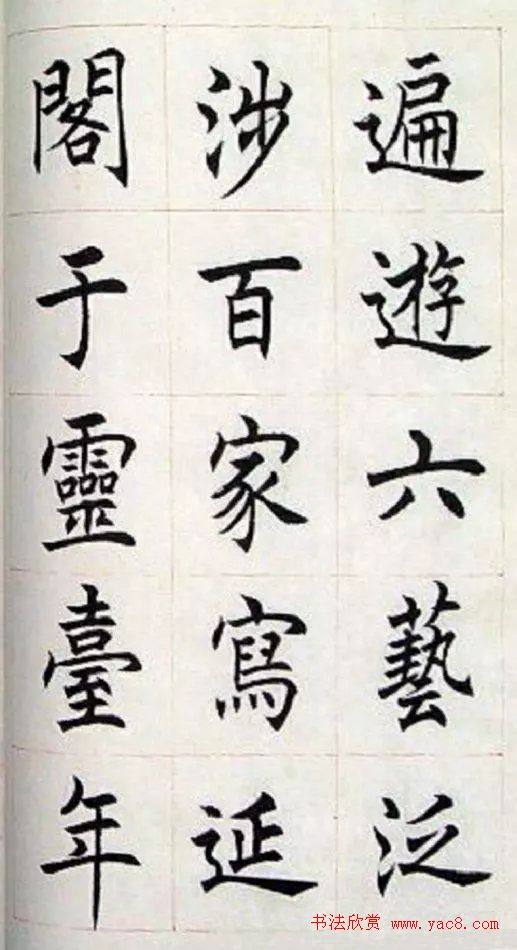 遍遊六藝泛
涉百家寫延
閣于靈臺年
书法欣赏 www.yac8.com